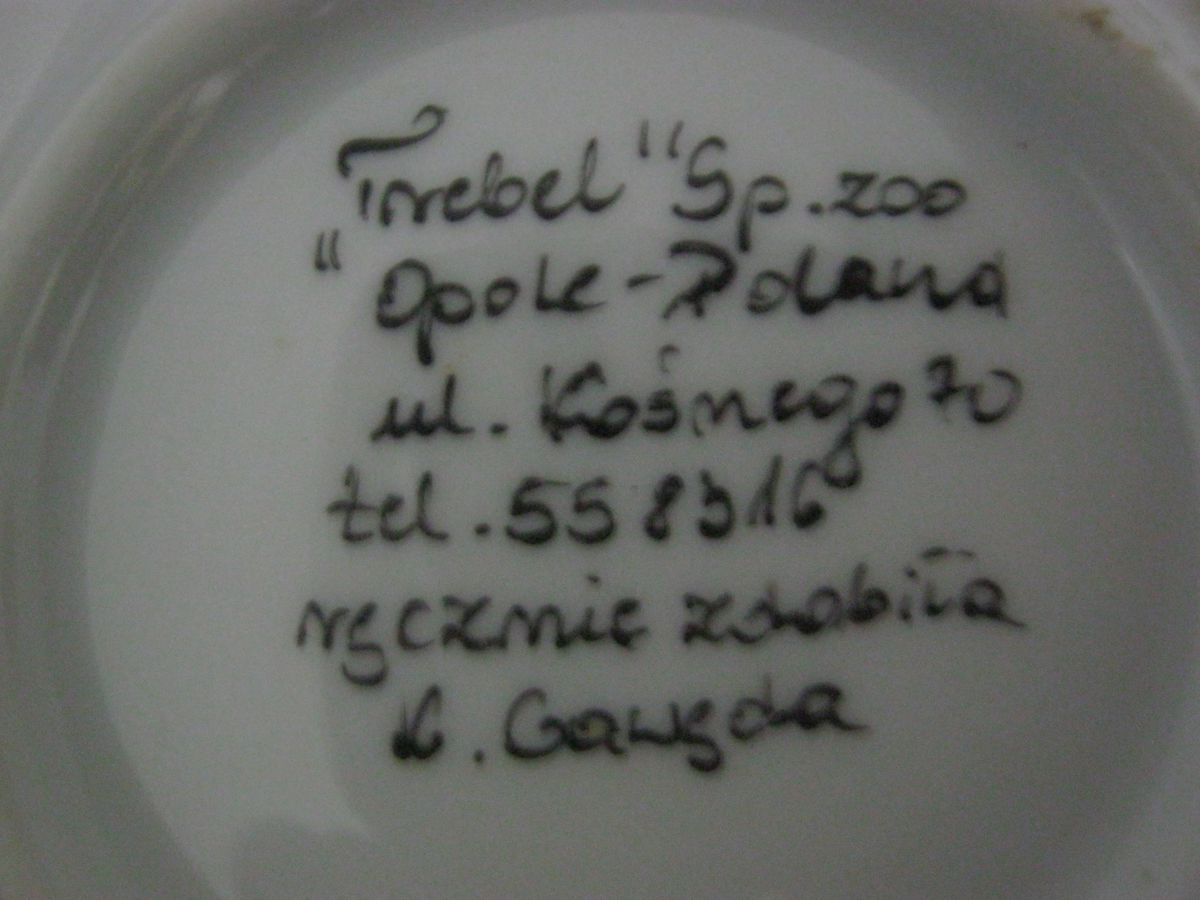 „Trebel" Sp. zoo
Opole - Poland
ul. Kośnego 70
tel. 558316
ręcznie zdobiła
K. Gawęda